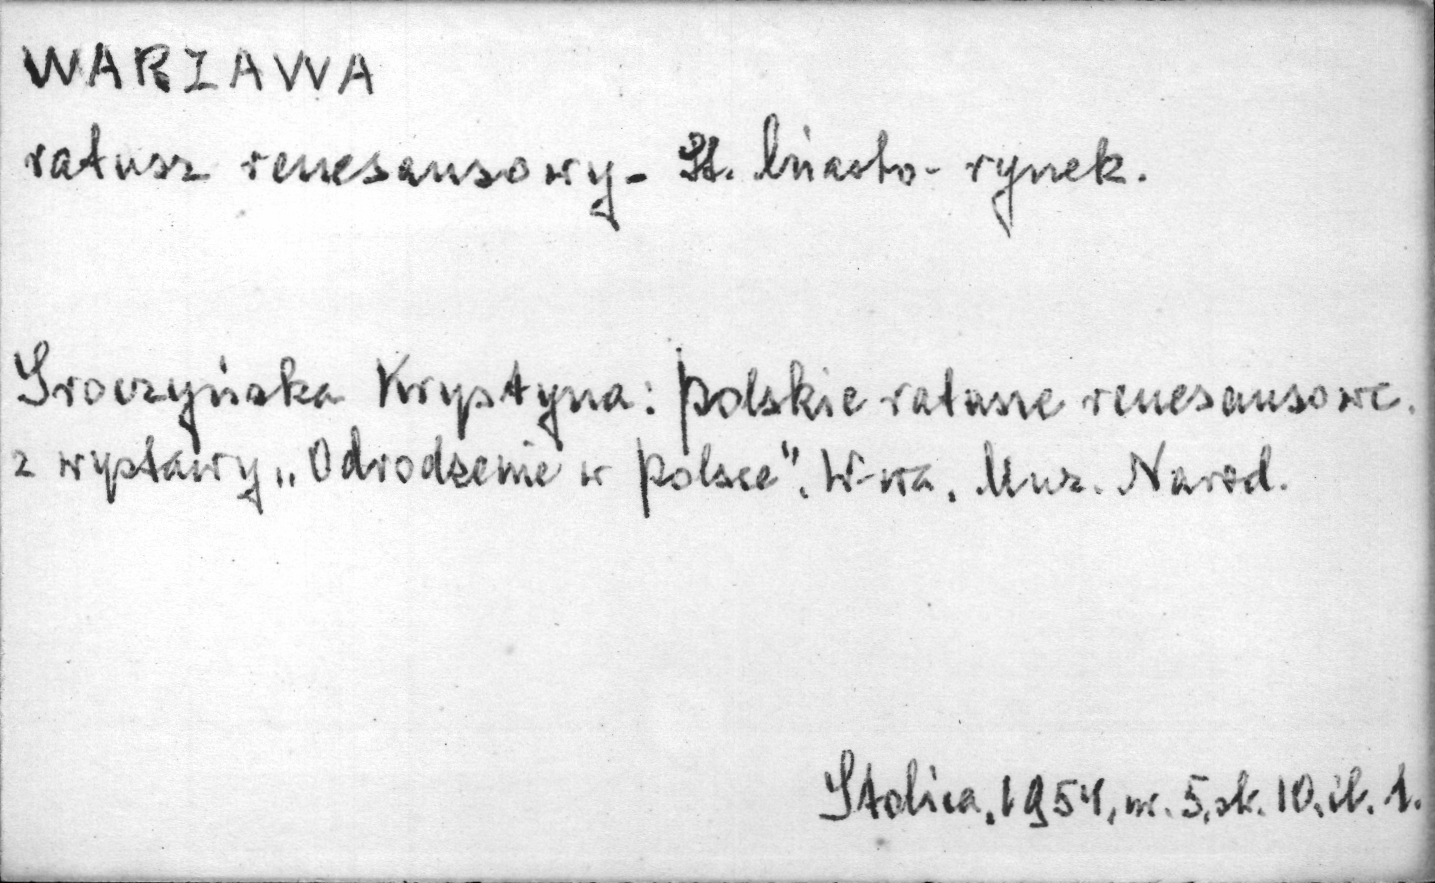 WARZAWA
ratusz renesansowy - St. Miasto - rynek.
Sroczyńska Krystyna: Polskie ratusze renesansowe.
z wystawy „Odrodzenie w Polsce". W-wa. Muz. Narod.
Stolica, 1954, nr. 5, st. 10, il. 1.